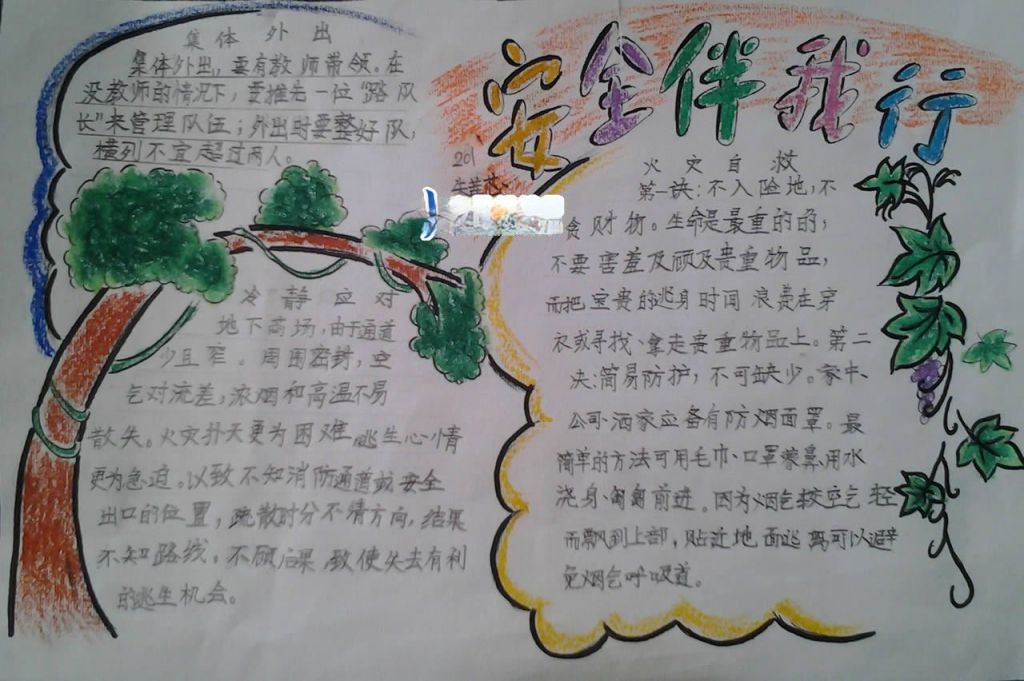 安全伴我行
集体外出
集体外出,要有教师带领。在
没教师的情况下,要推先一位"路队
长"来管理队伍;外出时要整好队,
横列不宜超过两人。
冷静应对
地下商场,由于通道
少且窄。周围密封,空
气对流差,浓烟和高温不易
散失。火灾扑灭更为困难逃生心情
更为急迫。以致不知消防通道或安全
出口的位置,疏散时分不清方向,结果
不知路线。不顾后果,致使失去有利
的逃生机会。
201
火灾自救
第一诀:不入险地,不
贪财物。生命是最重的的;
不要害羞及顾及贵重物品,
而把宝贵的逃身时间浪费在穿
衣或寻找、拿走贵重物品上。第二
决:简易防护,不可缺少。家中、
公司、酒家应备有防烟面罩。最
简单的方法可用毛巾、口罩蒙鼻,用水
浇身、匍匐前进。因为烟气较空气轻
而飘到上部,贴近地面逃离可以避
免烟气呼吸道。